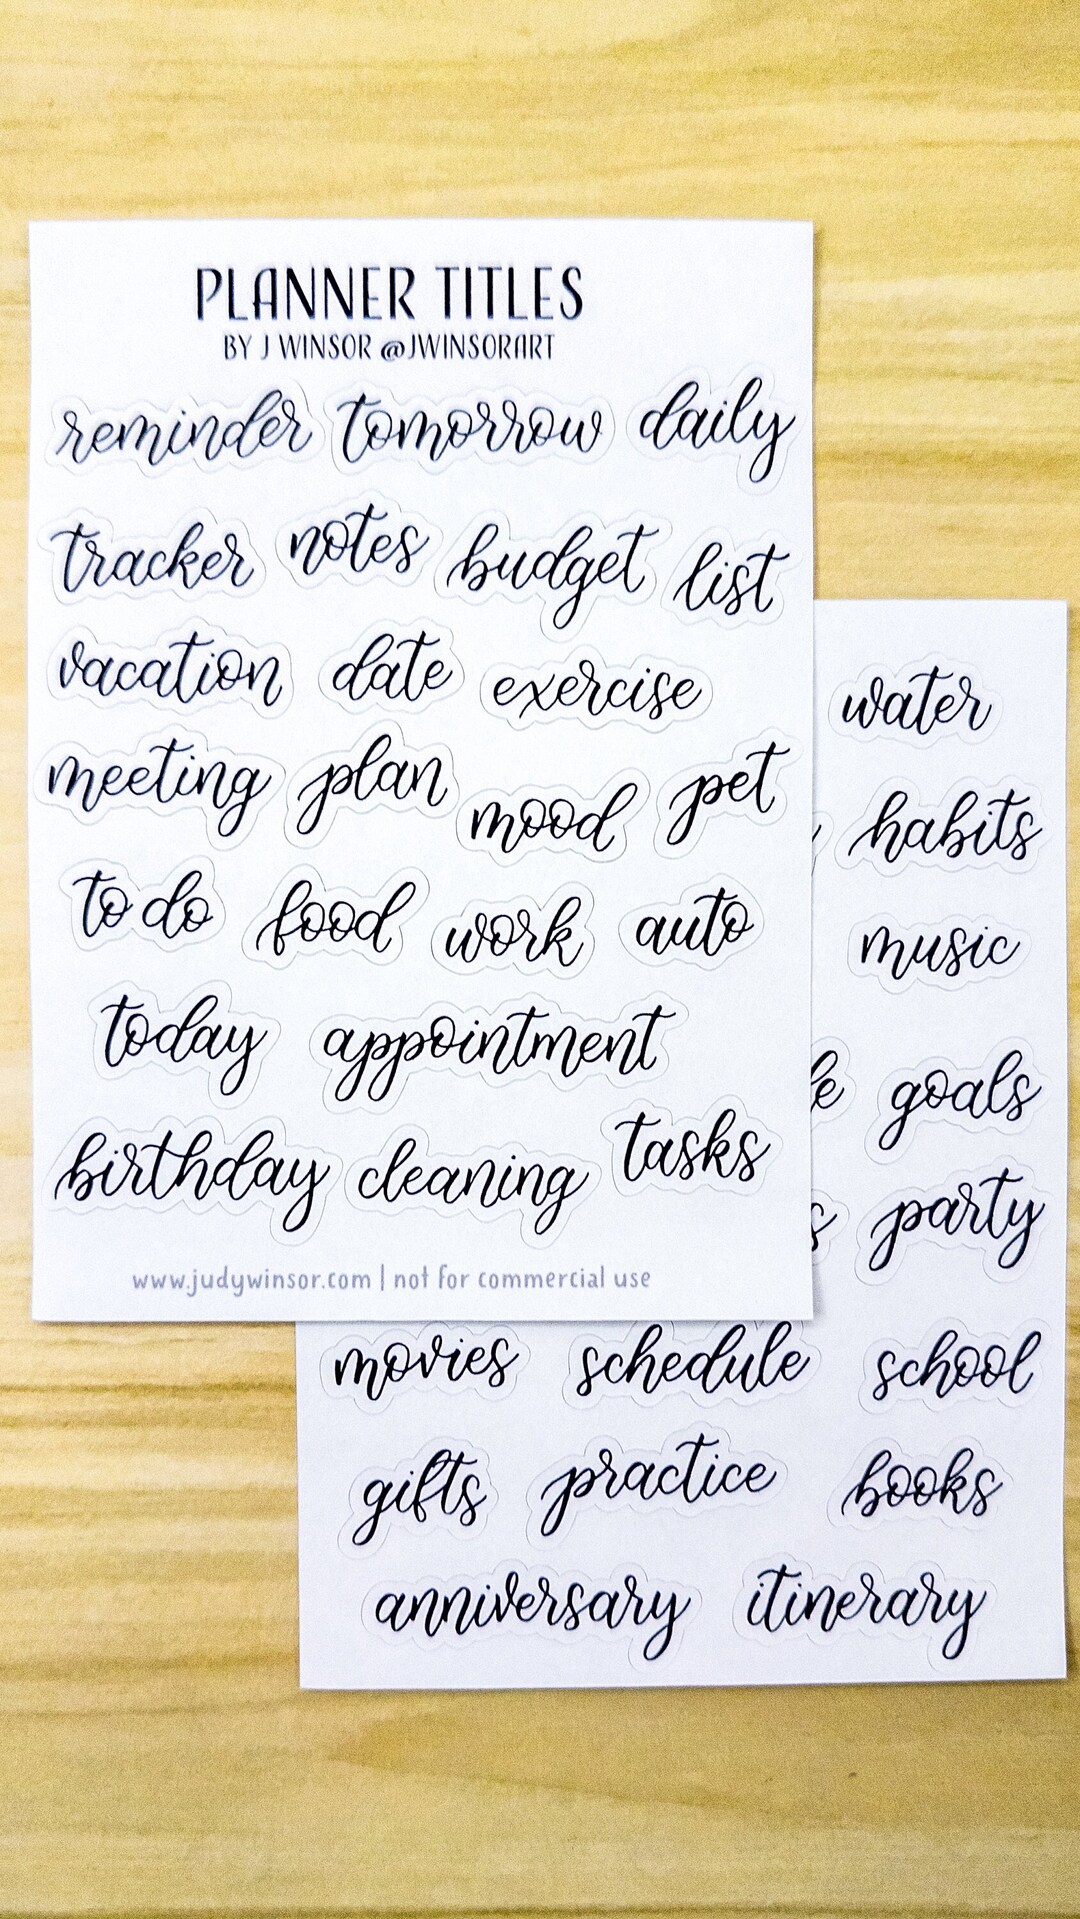 PLANNER TITLES
BY J WINSOR @JWINSORART
reminder tomorrow daily
tracker notes budget list
vacation date exercise
meeting plan mood pet
to do food work auto
today appointment
birthday cleaning tasks
www.judywinsor.com | not for commercial use
water
habits
music
goals
party
movies schedule school
gifts practice books
anniversary itinerary